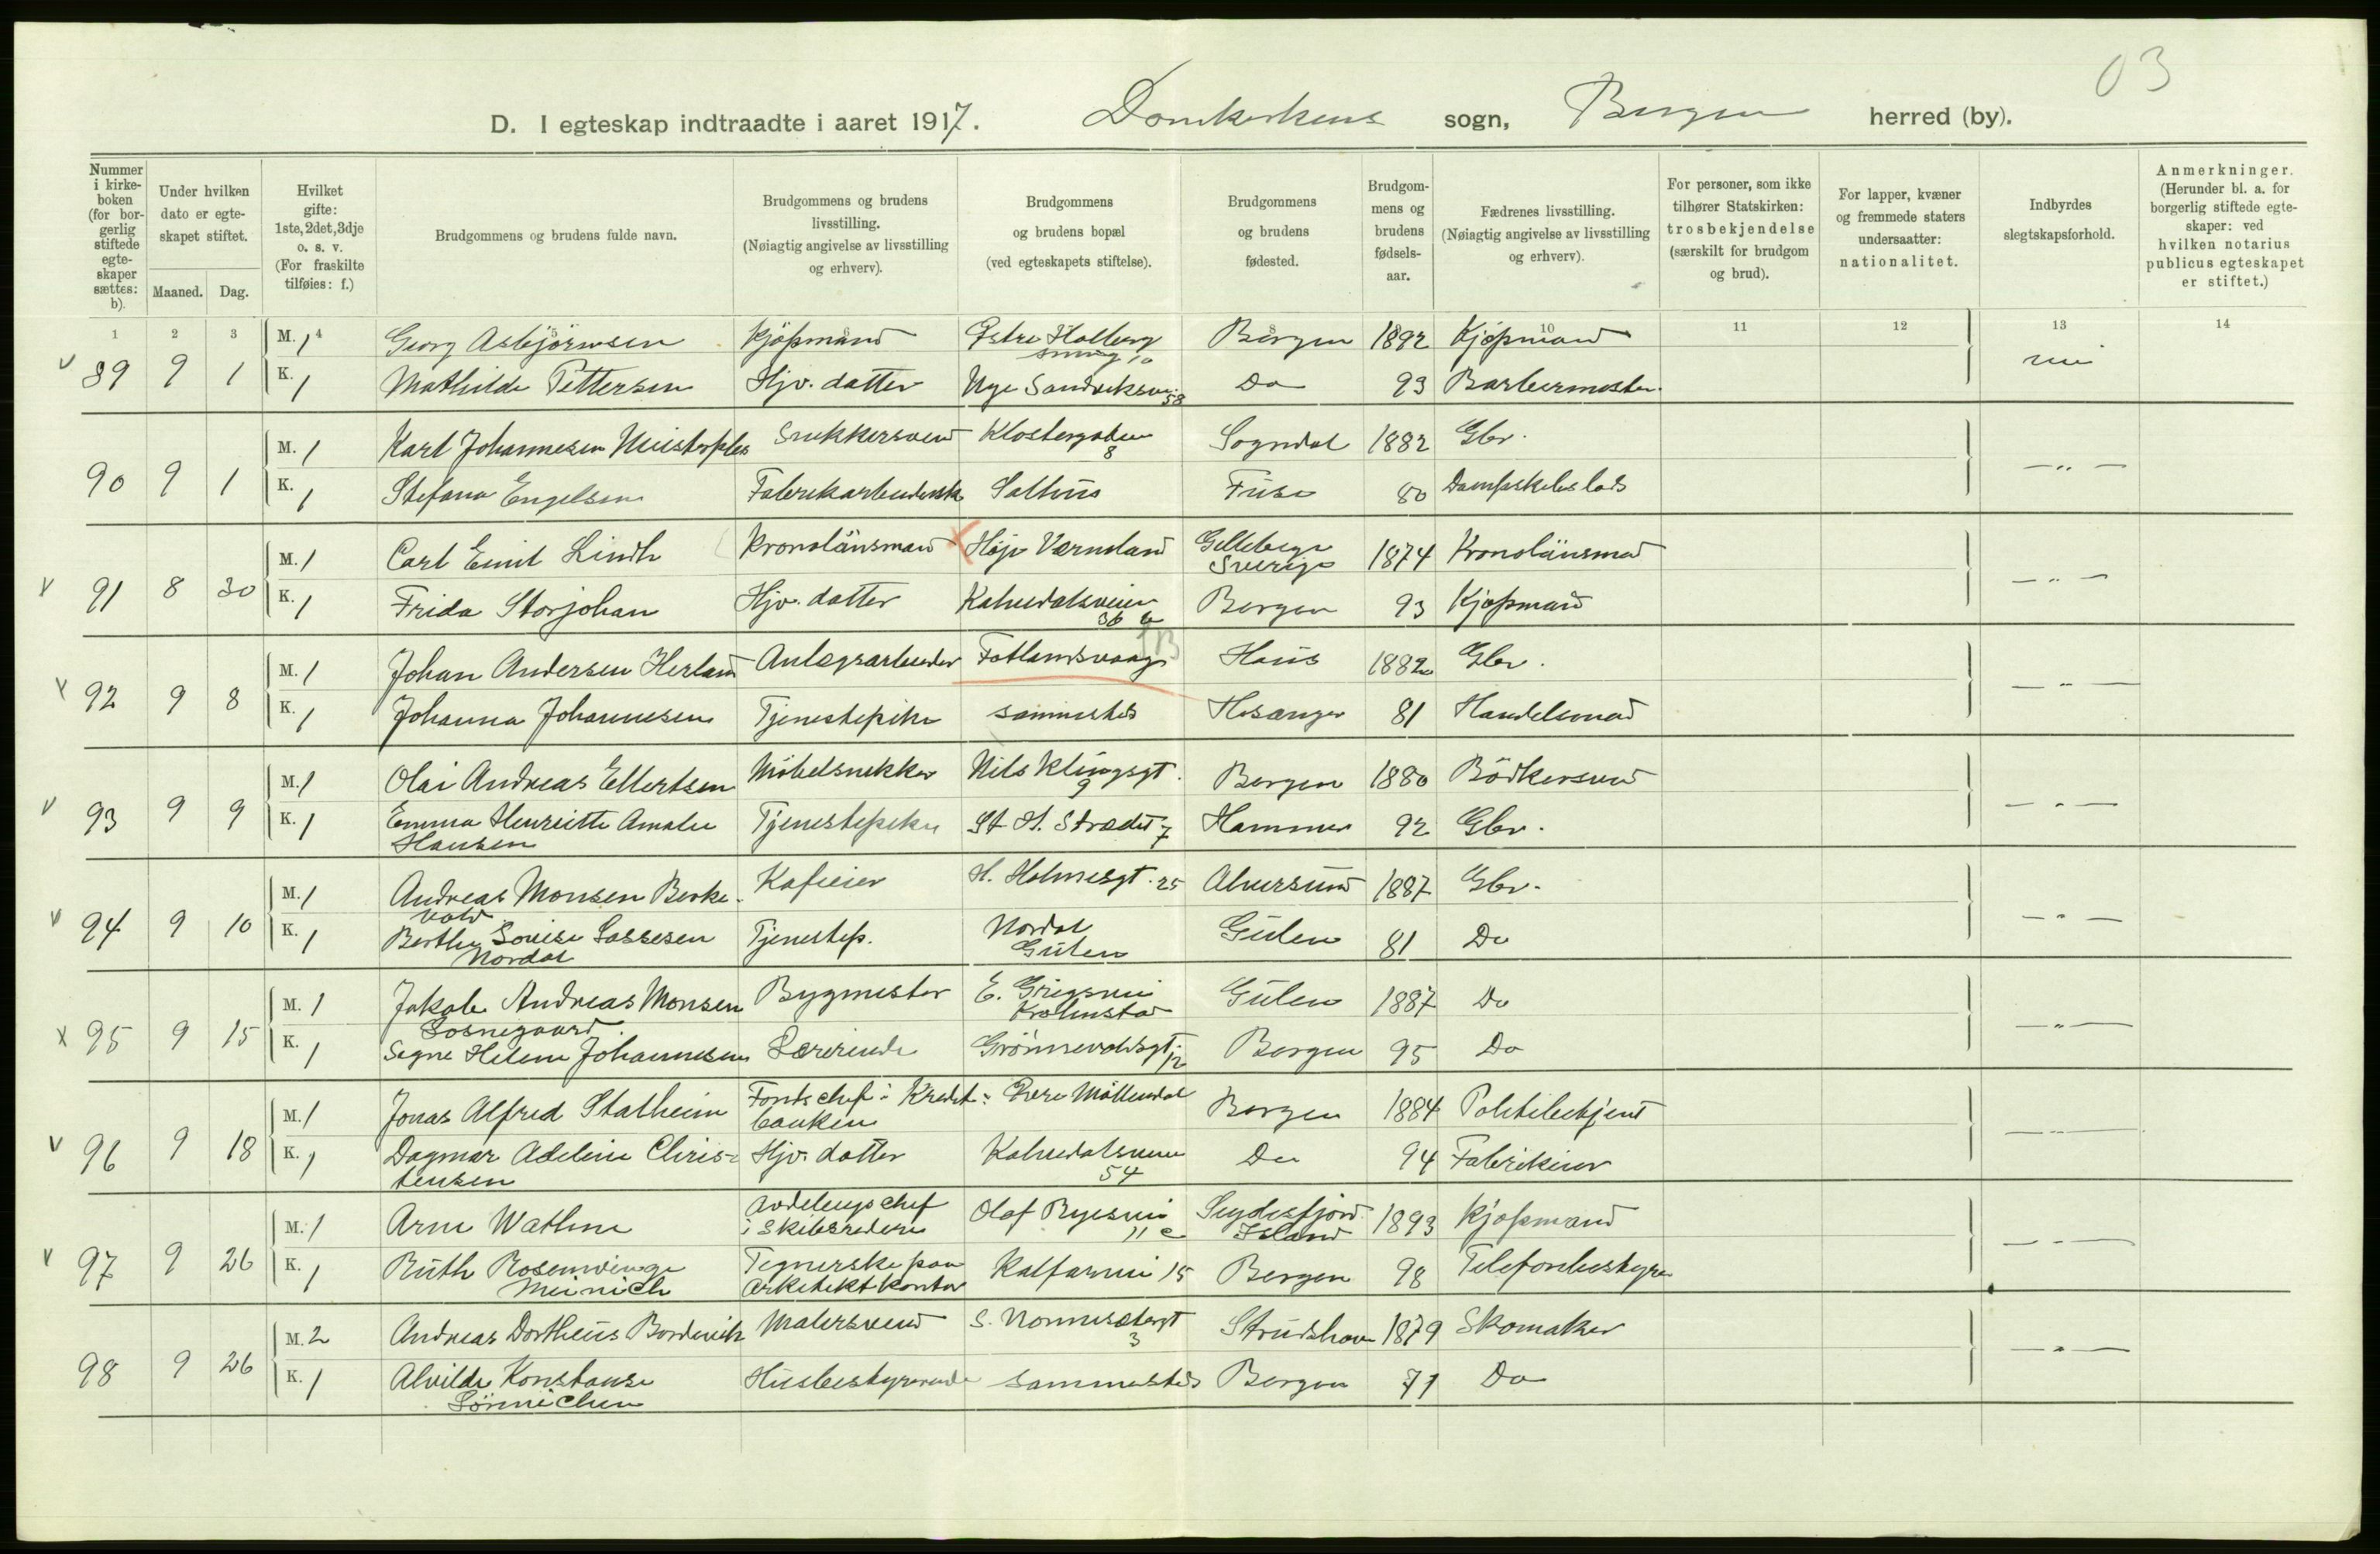 03
D. I egteskap indtraadte i aaret 1917. Domkirkens sogn, Bergen herred (by).
Nummer i kirkeboken (for borgerlig stiftede egteskaper sættes: b).
Under hvilken dato er egteskapet stiftet.
Maaned. Dag.
Hvilket gifte: 1ste, 2det, 3dje o. s. v. (For fraskilte tilføies: f.)
Brudgommens og brudens fulde navn.
Brudgommens og brudens livsstilling. (Nøiagtig angivelse av livsstilling og erhverv).
Brudgommens og brudens bopæl (ved egteskapets stiftelse).
Brudgommens og brudens fødested.
Brudgommens og brudens fødselsaar.
Fædrenes livsstilling. (Nøiagtig angivelse av livsstilling og erhverv).
For personer, som ikke tilhører Statskirken: trosbekjendelse (særskilt for brudgom og brud).
For lapper, kvæner og fremmede staters undersaatter: nationalitet.
Indbyrdes slegtskapsforhold.
Anmerkninger. (Herunder bl. a. for borgerlig stiftede egteskaper: ved hvilken notarius publicus egteskapet er stiftet.)
1 2 3 4 5 8 10 11 12 13 14
M. 1 Georg Asbjörnsen Kjöpmand Østre Holberg 10 Bergen 1892 Kjöpmand
v 89 9 1 K. 1 Mathilde Pettersen Hjv. datter Nye Sandviksv. 58 Do 93 Barbermester. nei
M. 1 Karl Johannesen Snekkersvend Klostergaten 8 Sogndal 1882 Gbr.
90 9 1 K. 1 Stefana Engelsen Fabrikarbeiderske Salhus Fuse 80 Dampskibslods — „ —
M. 1 Carl Emil Lindh Kronolänsman Höje Vermland Gilleberga Sverige 1874 Kronolänsmand
v 91 8 30 K. 1 Frida Storjohan Hjv. datter Kalvedalsveien 36 b Bergen 93 Kjøpmand — „ —
M. 1 Johan Andersen Herland Anlægsarbeider Fotlandsvaag Haus 1882 Gbr.
x 92 9 8 K. 1 Johanna Johannesen Tjenestepike sammesteds Hosanger 81 Handelsmand — „ —
M. 1 Olai Andreas Ellertsen Möbelsnekker Nils Klingsgt. 9 Bergen 1880 Bödkersvend
v 93 9 9 K. 1 Emma Henriette Amalie Hansen Tjenestepike St. H. Strædet 7 Hammer 92 Gbr. — „ —
M. 1 Andreas Monsen Birkevold Kafeeier H. Holmesgt. 25 Alversund 1887 Gbr.
v 94 9 10 K. 1 Berthe Lovise Lassesen Nordal Tjenestep. Nordal Gulen Gulen 81 Do — „ —
M. 1 Jakob Andreas Monsen Losnegaard Bygmester E. Griegsvei Kronstad Gulen 1887 Do
x 95 9 15 K. 1 Signe Helene Johannesen Lærerinde Grönnevoldsgt. 12 Bergen 95 Do — „ —
M. 1 Jonas Alfred Stalheim Fondschef i Kreditbanken Øvre Möllendal Bergen 1884 Politibetjent
v 96 9 18 K. 1 Dagmar Adeline Christensen Hjv. datter Kalvedalsveien 54 Do 94 Fabrikeier — „ —
M. 1 Arne Wathne Avdelingschef i Skibsrederi Olaf Ryesvei 11 c Seydisfjord Island 1893 Kjøpmand
v 97 9 26 K. 1 Ruth Rosenvinge Meinich Tegnerske paa arkitektkontor Kalfarvei 15 Bergen 98 Telefonbestyrer — „ —
M. 2 Andreas Dortheus Bordevik Malersvend S. Nonnesætergt 3 Strudshavn 1879 Skomaker
98 9 26 K. 1 Alvilde Konstanse Sönnichen Husbestyrerinde sammesteds Bergen 71 Do — „ —